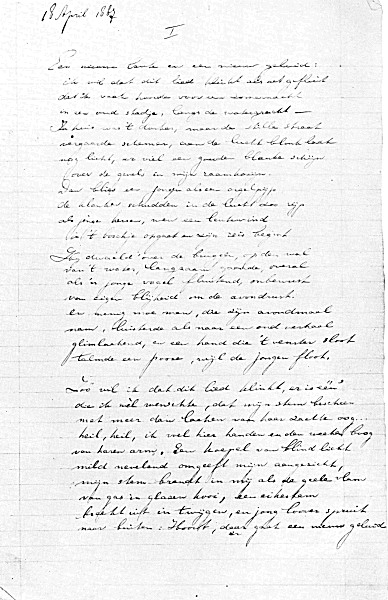 18 April 1887
I
Een nieuwe lente en een nieuw geluid:
ik wil dat dit lied klinkt als het gefluit
dat ik vaak hoorde voor een zomernacht
in een oud stadje, langs de watergracht —
In huis was 't donker, maar de stille straat
vergaarde schemer, aan de lucht blonk laat
nog licht, er viel een gouden blanke schijn
over de gevels in mijn raamkozijn.
Dan blies een jongen als een orgelpijp
de klanken schudden in de lucht zoo rijp
als jonge kersen, wen een lentewind
in 't boschje opgaat en zijn reis begint
Hij dwaald' over de bruggen, op den wal
van 't water, langzaam gaande, overal
als 'n jonge vogel fluitend, onbewust
van eigen blijheid om de avondrust.
En menig moe man, die zijn avondmaal
nam, luisterde als naar een oud verhaal
glimlachend, en een hand die 't venster sloot
talmde een pooze, wijl de jongen floot.
Zóó wil ik dat dit lied klinkt, er is één
die ik wèl wenschte, dat mijn stem bescheen
met meer dan lachen van haar zachte oog...
heil, heil, ik voel hier handen en den weeken boog
van haren arm. Een koepel van blind licht
mild nevelend omgeeft mijn aangezicht,
mijn stem brandt in mij als de geele vlam
van gas in glazen kooi, een eikestam
breekt uit in twijgen, en jong loover spruit
naar buiten: Hoort, daar gaat een nieuw geluid
er